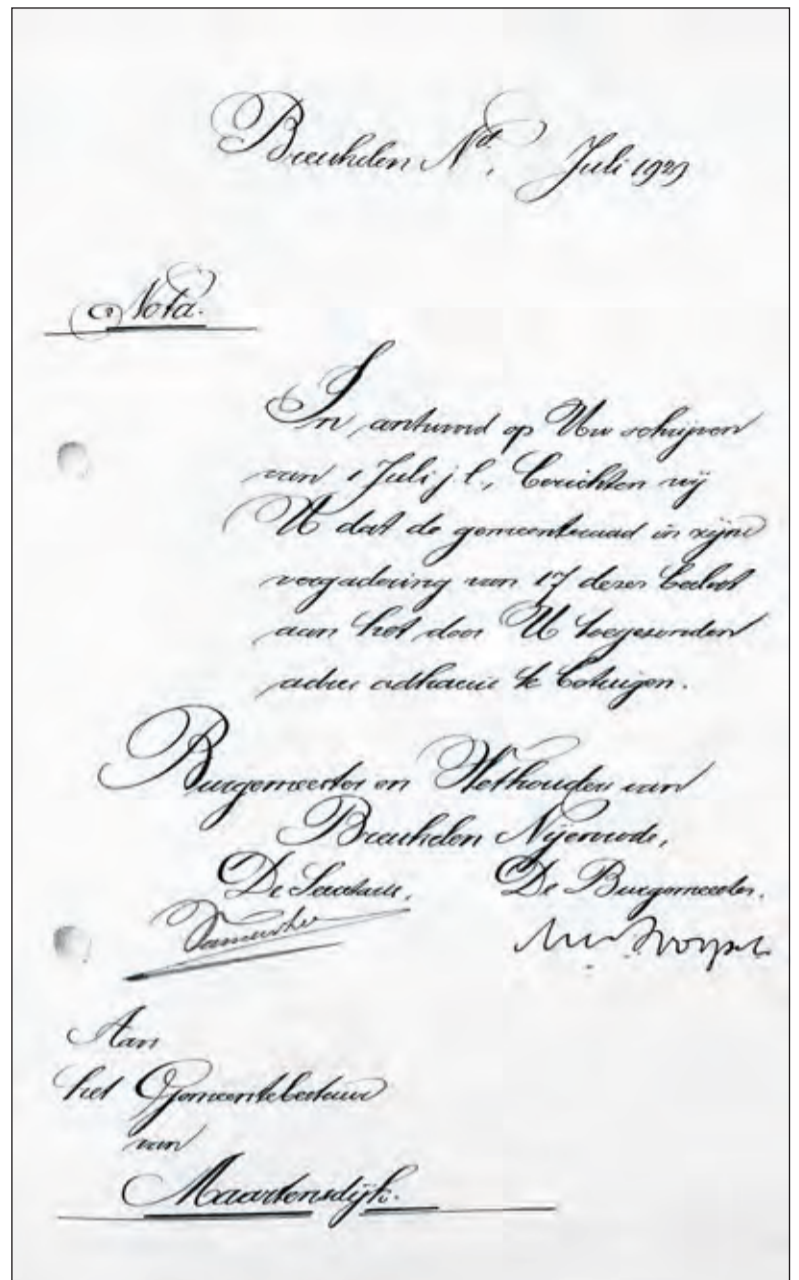 Breukelen Nd, Juli 1929
Nota.
In antwoord op Uw schrijven
van 1 Juli j l, berichten wij
U dat de gemeenteraad in zijne
vergadering van 17 dezer besloot
aan het door U toegezonden
adres adhaesie te betuigen.
Burgemeester en Wethouders van
Breukelen Nijenrode,
De Secretaris, De Burgemeester,
Aan
het Gemeentebestuur
van
Maartensdijk.